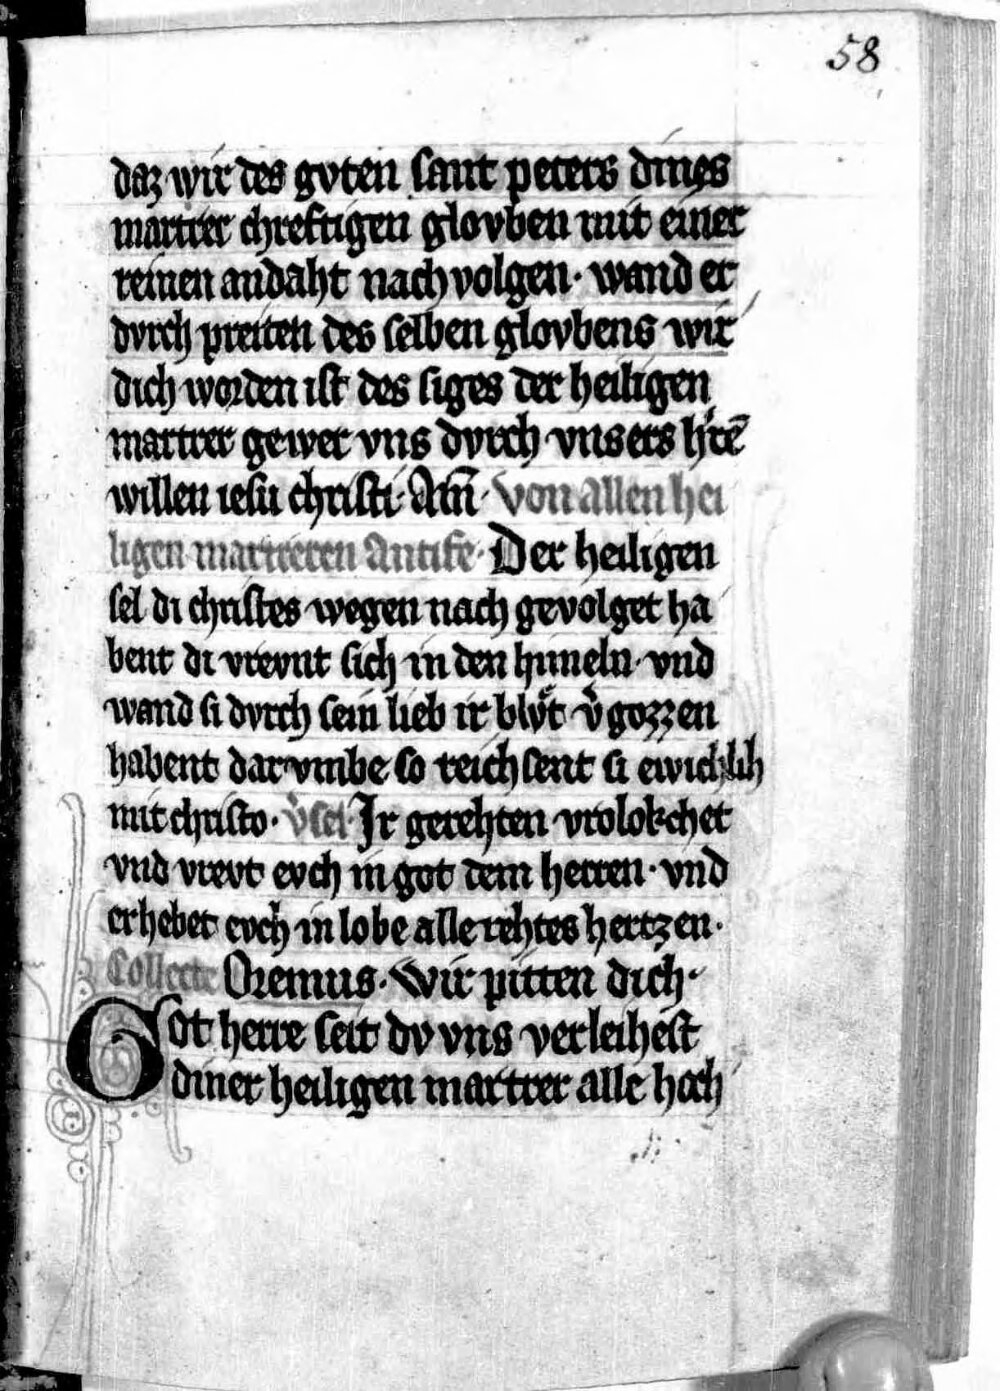 58
daz wir des gvten sant peters dines
martrer chreftigen glovben mit einer
reinen andaht nach volgen · wand er
dvrch preiten des selben glovbens wir
dich worden ist des siges der heiligen
martrer gewer vns dvrch vnsers h͛rē
willen iesu christi · Am̄ · Von allen hei
ligen martreren Antife · Der heiligen
sel di christes wegen nach gevolget ha
bent di vrevnt sich in den himeln · vnd
wand si dvrch sein lieb ir blvͦt v͛gozzen
habent dar vmbe so reichsent si ewichlich
mit christo · v͛sel · Ir gerehten vrolokchet
vnd vrevt evch in got dem herren · vnd
erhebet evch in lobe alle rehtes hertzen ·
Collecte Oremus · Wir pitten dich ·
Got herre seit dv vns verleihest
diner heiligen martrer alle hoch